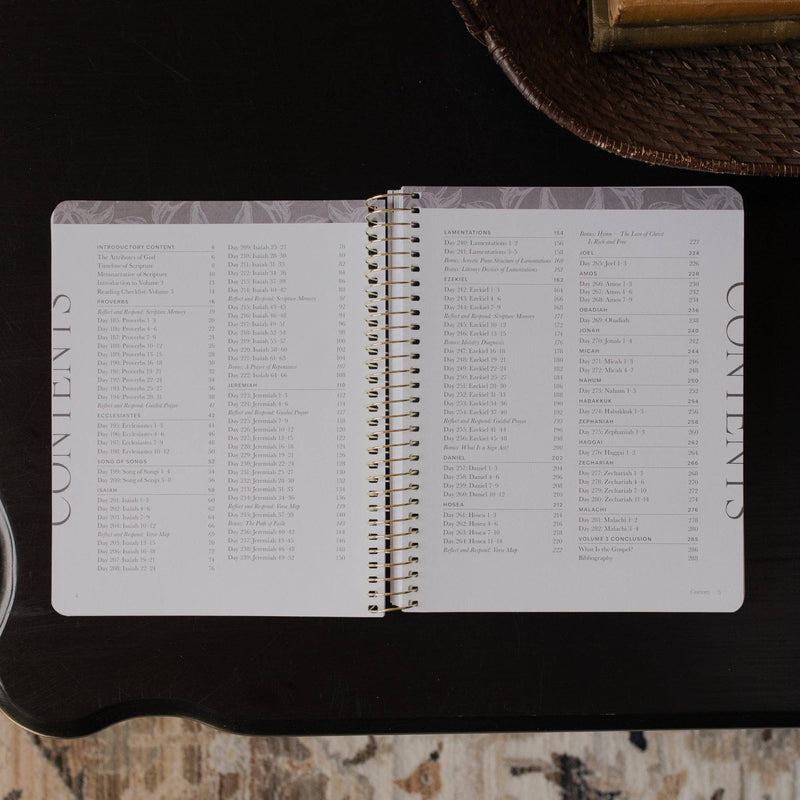 CONTENTS
INTRODUCTORY CONTENT
The Attributes of God 6
Timeline of Scripture 8
Metanarrative of Scripture 10
Introduction to Volume 3
Reading Checklist: Volume 3
PROVERBS 16
Reflect and Respond: Scripture Memory 19
Day 185: Proverbs 1–3 20
Day 186: Proverbs 4–6 22
Day 187: Proverbs 7–9 24
Day 188: Proverbs 10–12 26
Day 189: Proverbs 13–15 28
Day 190: Proverbs 16–18 30
Day 191: Proverbs 19–21 32
Day 192: Proverbs 22–24 34
Day 193: Proverbs 25–27 36
Day 194: Proverbs 28–31 38
Reflect and Respond: Guided Prayer 41
ECCLESIASTES 42
Day 195: Ecclesiastes 1–3 44
Day 196: Ecclesiastes 4–6 46
Day 197: Ecclesiastes 7–9 48
Day 198: Ecclesiastes 10–12 50
SONG OF SONGS 52
Day 199: Song of Songs 1–4 54
Day 200: Song of Songs 5–8 56
ISAIAH 58
Day 201: Isaiah 1–3 60
Day 202: Isaiah 4–6 62
Day 203: Isaiah 7–9 64
Day 204: Isaiah 10–12 66
Reflect and Respond: Verse Map 69
Day 205: Isaiah 13–15 70
Day 206: Isaiah 16–18 72
Day 207: Isaiah 19–21 74
Day 208: Isaiah 22–24 76
4
Day 209: Isaiah 25–27 78
Day 210: Isaiah 28–30 80
Day 211: Isaiah 31–33 82
Day 212: Isaiah 34–36 84
Day 213: Isaiah 37–39 86
Day 214: Isaiah 40–42 88
Reflect and Respond: Scripture Memory 91
Day 215: Isaiah 43–45 92
Day 216: Isaiah 46–48 94
Day 217: Isaiah 49–51 96
Day 218: Isaiah 52–54 98
Day 219: Isaiah 55–57 100
Day 220: Isaiah 58–60 102
Day 221: Isaiah 61–63 104
Bonus: A Prayer of Repentance 107
Day 222: Isaiah 64–66 108
JEREMIAH 110
Day 223: Jeremiah 1–3 112
Day 224: Jeremiah 4–6 114
Reflect and Respond: Guided Prayer 117
Day 225: Jeremiah 7–9 118
Day 226: Jeremiah 10–12 120
Day 227: Jeremiah 13–15 122
Day 228: Jeremiah 16–18 124
Day 229: Jeremiah 19–21 126
Day 230: Jeremiah 22–24 128
Day 231: Jeremiah 25–27 130
Day 232: Jeremiah 28–30 132
Day 233: Jeremiah 31–33 134
Day 234: Jeremiah 34–36 136
Reflect and Respond: Verse Map 139
Day 235: Jeremiah 37–39 140
Bonus: The Path of Exile 143
Day 236: Jeremiah 40–42 144
Day 237: Jeremiah 43–45 146
Day 238: Jeremiah 46–48 148
Day 239: Jeremiah 49–52 150
LAMENTATIONS 154
Day 240: Lamentations 1–2 156
Day 241: Lamentations 3–5 158
Bonus: Acrostic Poem Structure of Lamentations 160
Bonus: Literary Devices of Lamentations 161
EZEKIEL 162
Day 242: Ezekiel 1–3 164
Day 243: Ezekiel 4–6 166
Day 244: Ezekiel 7–9 168
Reflect and Respond: Scripture Memory 171
Day 245: Ezekiel 10–12 172
Day 246: Ezekiel 13–15 174
Bonus: Idolatry Diagnosis 176
Day 247: Ezekiel 16–18 178
Day 248: Ezekiel 19–21 180
Day 249: Ezekiel 22–24 182
Day 250: Ezekiel 25–27 184
Day 251: Ezekiel 28–30 186
Day 252: Ezekiel 31–33 188
Day 253: Ezekiel 34–36 190
Day 254: Ezekiel 37–40 192
Reflect and Respond: Guided Prayer 195
Day 255: Ezekiel 41–44 196
Day 256: Ezekiel 45–48 198
Bonus: What Is a Sign Act? 200
DANIEL 202
Day 257: Daniel 1–3 204
Day 258: Daniel 4–6 206
Day 259: Daniel 7–9 208
Day 260: Daniel 10–12 210
HOSEA 212
Day 261: Hosea 1–3 214
Day 262: Hosea 4–6 216
Day 263: Hosea 7–10 218
Day 264: Hosea 11–14 220
Reflect and Respond: Verse Map 222
Bonus: Hymn — The Love of Christ
Is Rich and Free 223
JOEL 224
Day 265: Joel 1–3 226
AMOS 228
Day 266: Amos 1–3 230
Day 267: Amos 4–6 232
Day 268: Amos 7–9 234
OBADIAH 236
Day 269: Obadiah 238
JONAH 240
Day 270: Jonah 1–4 242
MICAH 244
Day 271: Micah 1–3 246
Day 272: Micah 4–7 248
NAHUM 250
Day 273: Nahum 1–3 252
HABAKKUK 254
Day 274: Habakkuk 1–3 256
ZEPHANIAH 258
Day 275: Zephaniah 1–3 260
HAGGAI 262
Day 276: Haggai 1–2 264
ZECHARIAH 266
Day 277: Zechariah 1–3 268
Day 278: Zechariah 4–6 270
Day 279: Zechariah 7–10 272
Day 280: Zechariah 11–14 274
MALACHI 276
Day 281: Malachi 1–2 278
Day 282: Malachi 3–4 280
VOLUME 3 CONCLUSION 285
What Is the Gospel? 286
Bibliography 288
Contents 5
CONTENTS